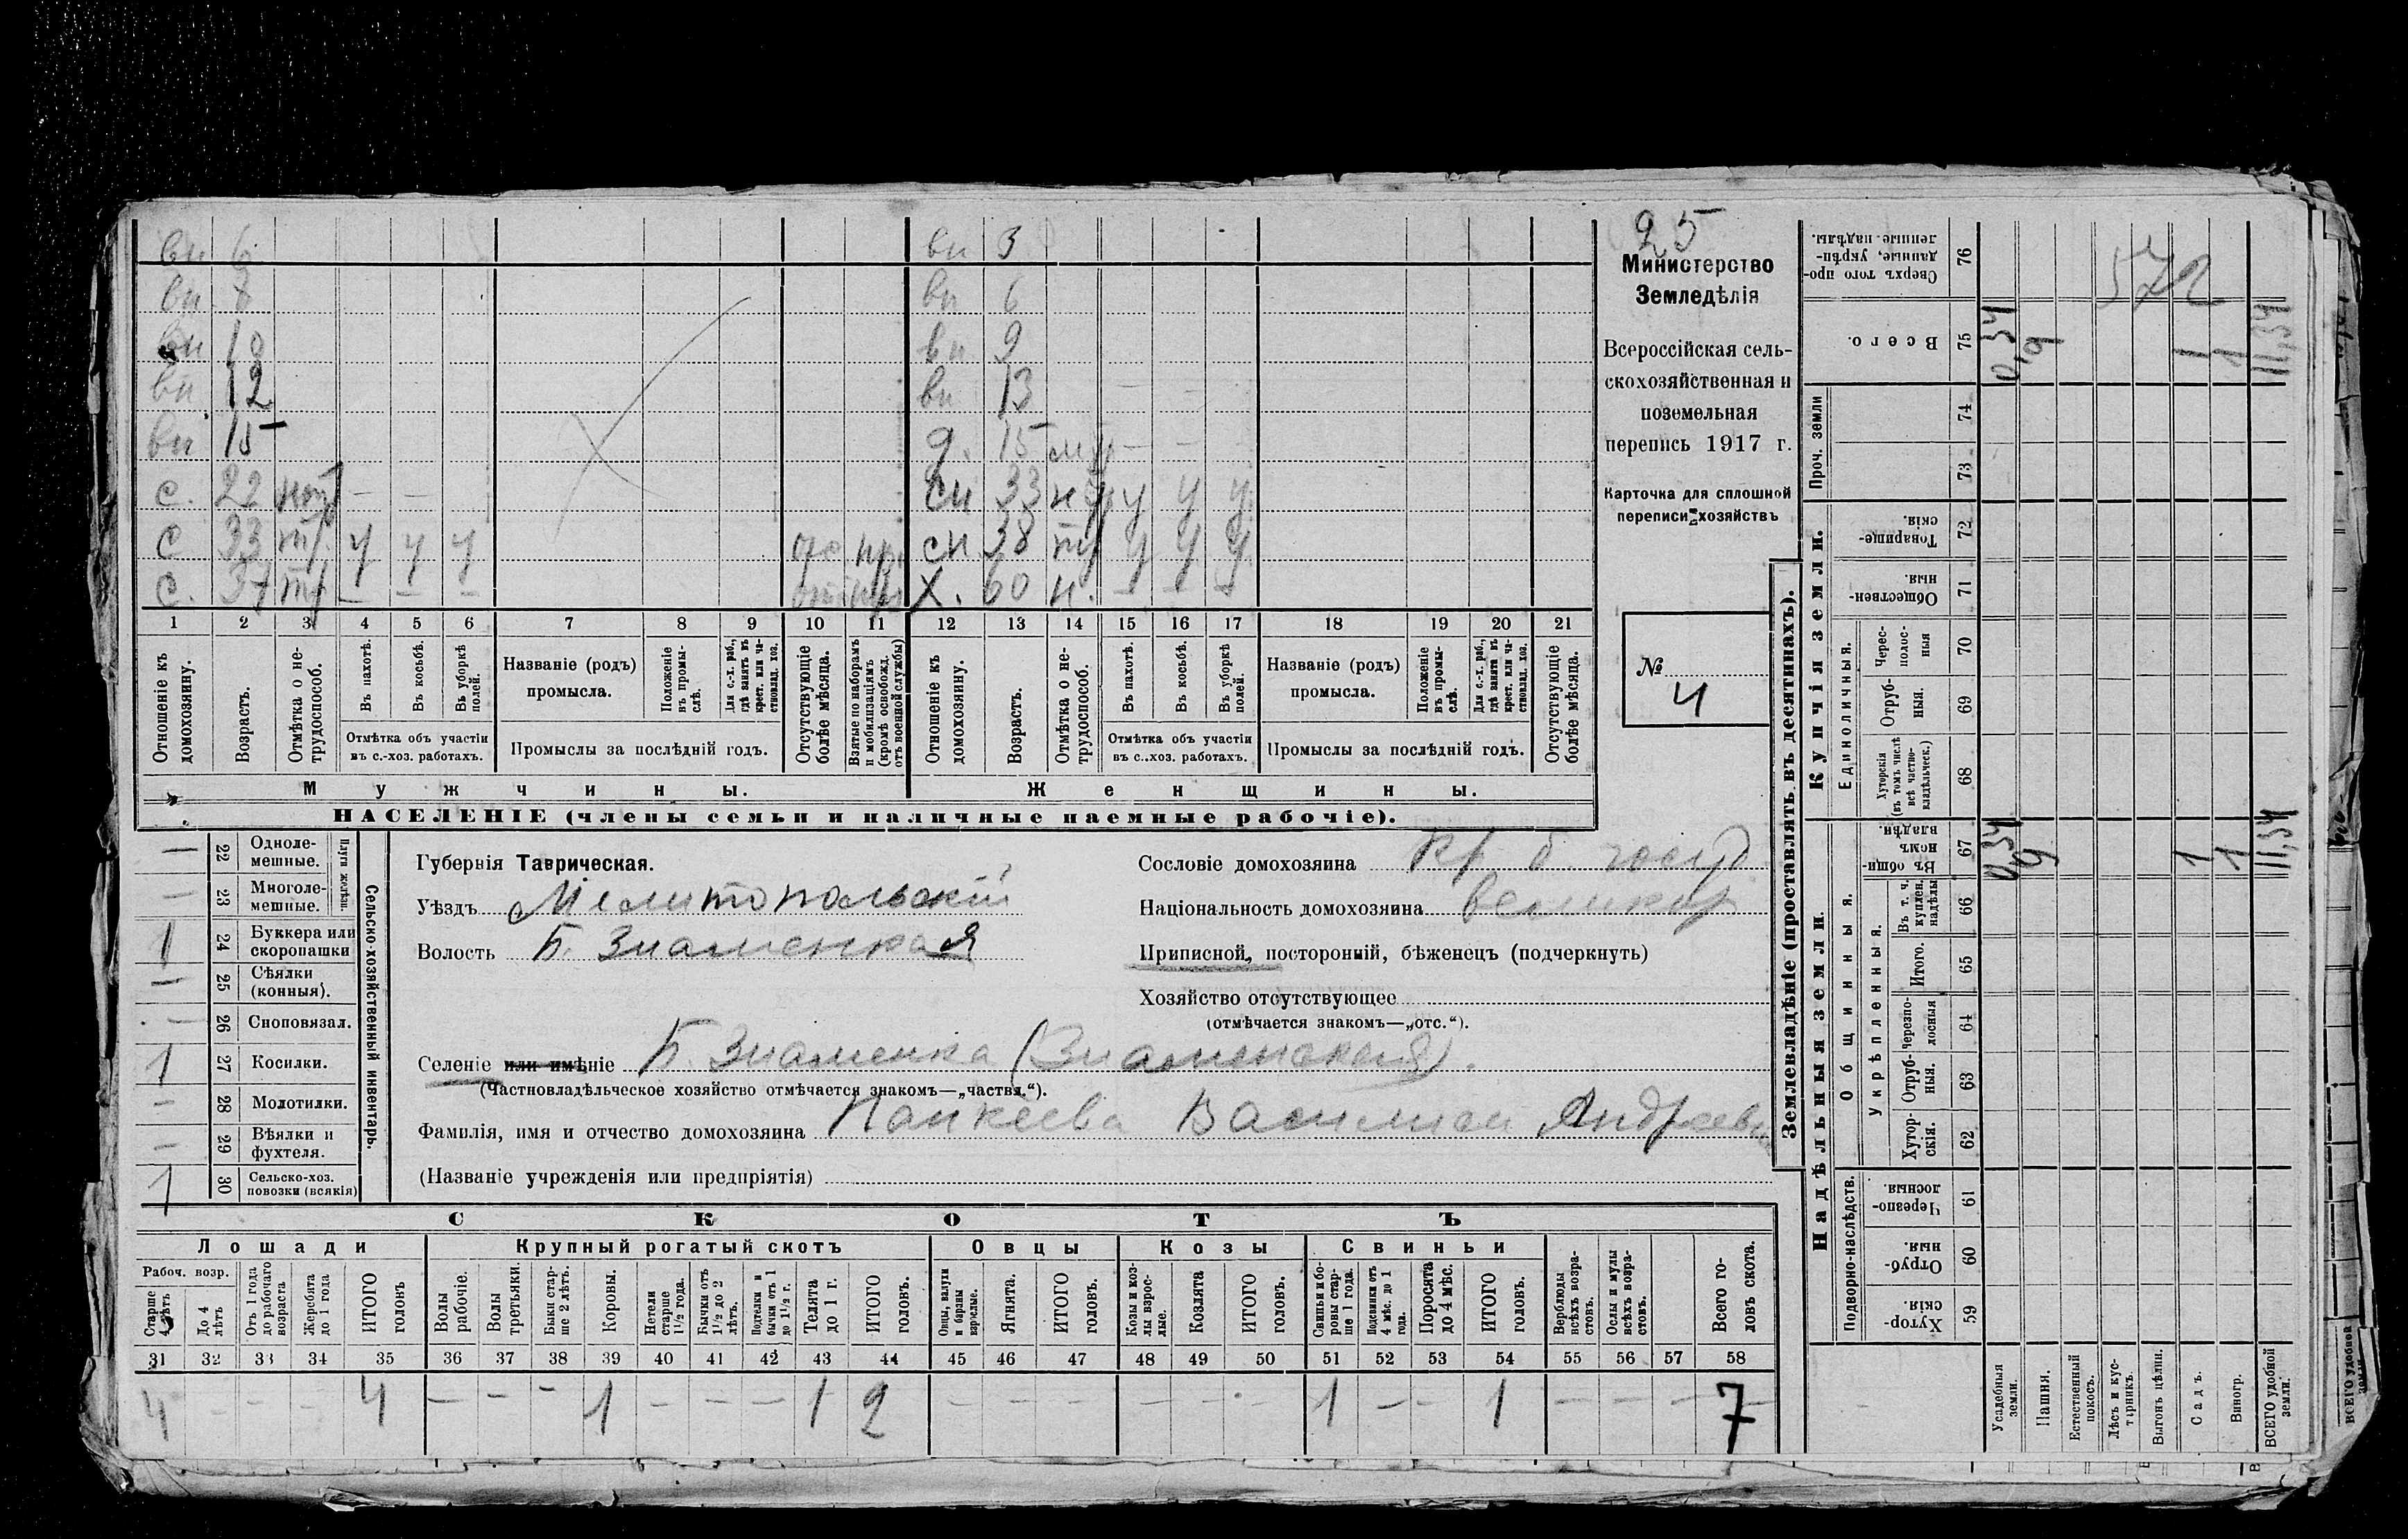 вн 6 вн 3
вн 8 вн 6
вн 10 вн 9
вн 12 вн 13
вн 15 д. 15
с. 22 — — сн 33 н у у у
с 33 у у у сн 38 у у у
с. 37 — — — Х. 60 н. — — —
1 2 3 4 5 6 7 8 9 10 11 12 13 14 15 16 17 18 19 20 21
Отношеніе къ домохозяину.
Возрастъ.
Отмѣтка о не-трудоспособ.
Въ пахотѣ.
Въ косьбѣ.
Въ уборкѣ полей.
Отмѣтка объ участіи
въ с.-хоз. работахъ.
Названіе (родъ)
промысла.
Положеніе въ промы-слѣ.
Для с.-х. раб., гдѣ занятъ въ крест. или ча-ствовлад. хоз.
Промыслы за послѣдній годъ.
Отсутствующіе болѣе мѣсяца.
Взятые по наборамъ и мобилизаціямъ (кромѣ освобожд. отъ военной службы)
Отношеніе къ домохозяину.
Возрастъ.
Отмѣтка о не-трудоспособ.
Въ пахотѣ.
Въ косьбѣ.
Въ уборкѣ полей.
Отмѣтка объ участіи
въ с..хоз. работахъ.
Названіе (родъ)
промысла.
Положеніе въ промы-слѣ.
Для с.-х. раб., гдѣ занята въ крест. или ча-ствовлад. хоз.
Промыслы за послѣдній годъ.
Отсутствующіе болѣе мѣсяца.
Мужчины. Женщины.
НАСЕЛЕНІЕ (члены семьи и наличные наемные рабочіе).
25
Министерство
Земледѣлія
Всероссійская сель-
скохозяйственная и
поземельная
перепись 1917 г.
Карточка для сплошной
переписи хозяйствъ
№ 4
— 22 Одноле-мешные.
— 23 Многоле-мешные.
Плуги желѣзн.
1 24 Буккера или скоропашки
— 25 Сѣялки (конныя).
— 26 Сноповязал.
1 27 Косилки.
— 28 Молотилки.
— 29 Вѣялки и фухтеля.
1 30 Сельско-хоз. повозки (всякія)
Сельско-хозяйственный инвентарь.
Губернія Таврическая.
Уѣздъ Мелитопольскій
Волость Б. Знаменская
Сословіе домохозяина Кр б. госуд
Національность домохозяина великор
Приписной, посторонній, бѣженецъ (подчеркнуть)
Хозяйство отсутствующее
(отмѣчается знакомъ—„отс.“).
Селеніе или имѣніе Б. Знаменка (Знаменская).
(Частновладѣльческое хозяйство отмѣчается знакомъ—„частвл.“).
Фамилія, имя и отчество домохозяина Панкеева Андреевн
(Названіе учрежденія или предпріятія)
СКОТЪ
Лошади Крупный рогатый скотъ Овцы Козы Свиньи
Рабоч. возр.
Старше 4 лѣтъ
До 4 лѣтъ
Отъ 1 года до рабочаго возраста
Жеребята до 1 года
ИТОГО головъ
Волы рабочіе.
Волы третьяки.
Быки стар-ше 2 лѣтъ.
Коровы.
Нетели старше 1½ года.
Бычки отъ 1½ до 2 лѣтъ.
Подтелки и бычки отъ 1 до 1½ г.
Телята до 1 г.
ИТОГО головъ.
Овцы, валухи и бараны взрослые.
Ягнята.
ИТОГО головъ.
Козы и коз-лы взрос-лые.
Козлята
ИТОГО головъ.
Свиньи и бо-ровы стар-ше 1 года.
Подсвинки отъ 4 мѣс. до 1 года.
Поросята до 4 мѣс.
ИТОГО головъ.
Верблюды всѣхъ возра-стовъ.
Ослы и мулы всѣхъ возра-стовъ.
Всего го-ловъ скота.
31 32 33 34 35 36 37 38 39 40 41 42 43 44 45 46 47 48 49 50 51 52 53 54 55 56 57 58
4 — — — 4 — — — 1 — — — 1 2 — — — — — — 1 — — 1 — — — 7
Землевладѣніе (проставлять въ десятинахъ).
Купчія земли.
Надѣльныя земли.
Сверхъ того про-данные, укрѣп-ленные надѣлы. 76
Всего. 75
Проч. земли 74 73
Товарище-скія. 72
Обществен-ныя. 71
Единоличныя.
Черес-полос-ныя 70
Отруб-ныя. 69
Хуторскія (въ томъ числѣ всѣ частно-владѣльческ.) 68
Общинныя.
Въ общи-номъ владѣн. 67
Укрѣпленныя.
Въ т. ч. куплен. надѣлы 66
Итого. 65
Черезпо-лосныя 64
Отруб-ныя. 63
Хутор-скія. 62
Подворно-наслѣдств.
Черезпо-лосныя. 61
Отруб-ныя. 60
Хутор-скія. 59
Усадебныя земли.
Пашня.
Естественный покосъ.
Лѣсъ и кус-тарникъ.
Выгонъ цѣлин.
Садъ.
Виногр.
ВСЕГО удобной земли.
572
0,34 9 1 1 11,34
0,34 9 1 1 11,34
ВСЕГО удобной земли.